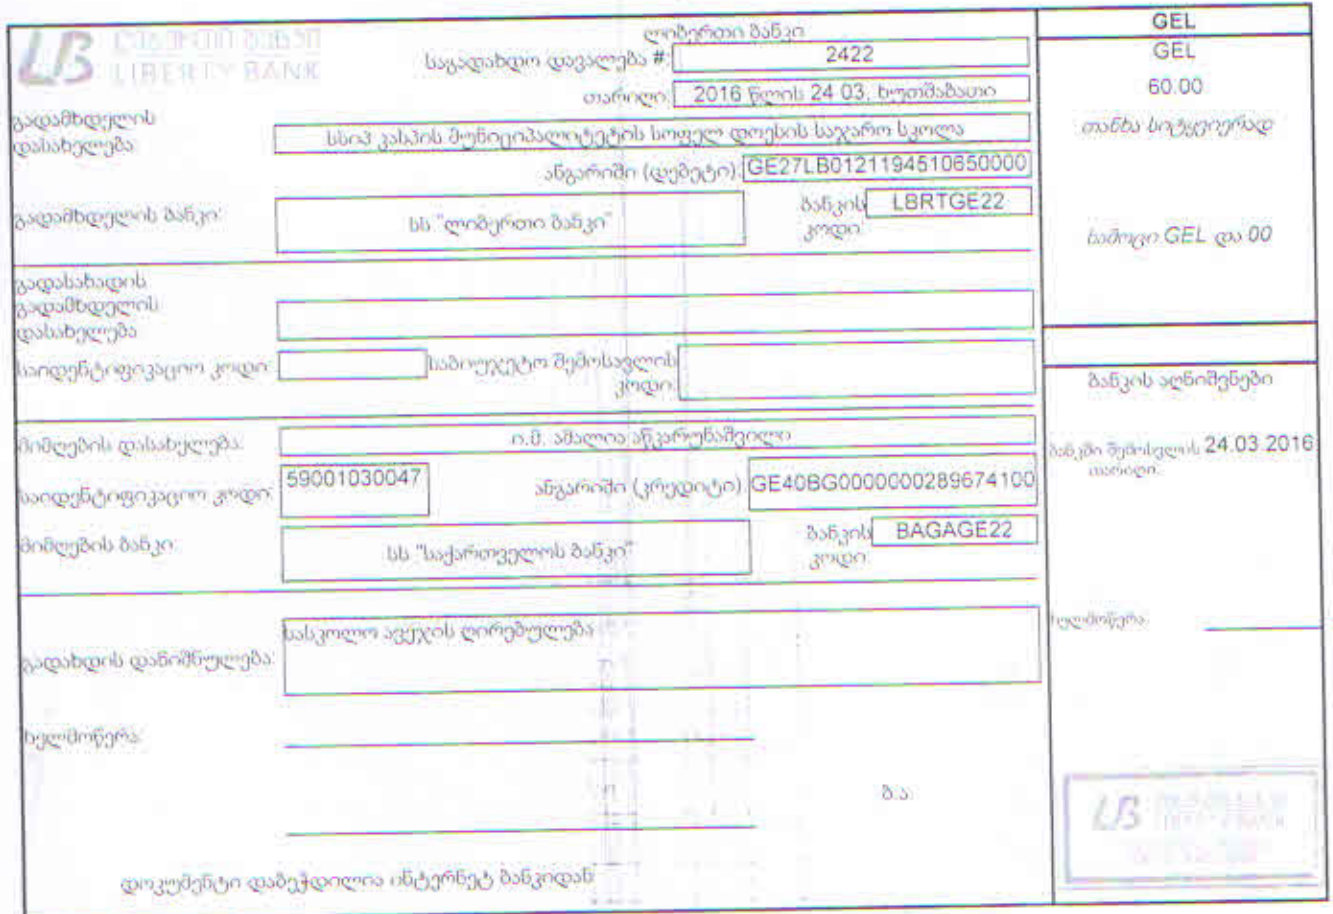 ლიბერთი ბანკი
LIBERTY BANK
ლიბერთი ბანკი
საგადახდო დავალება #: 2422
თარიღი: 2016 წლის 24 03, ხუთშაბათი
გადამხდელის დასახელება: სსიპ კასპის მუნიციპალიტეტის სოფელ დოესის საჯარო სკოლა
ანგარიში (დებეტი): GE27LB0121194510650000
გადამხდელის ბანკი: სს "ლიბერთი ბანკი" ბანკის კოდი: LBRTGE22
გადასახადის
გადამხდელის
დასახელება
საიდენტიფიკაციო კოდი: საბიუჯეტო შემოსავლის
კოდი:
მიმღების დასახელება: ი.მ. ამალია
საიდენტიფიკაციო კოდი: 59001030047 ანგარიში (კრედიტი): GE40BG0000000289674100
მიმღების ბანკი: სს "საქართველოს ბანკი" ბანკის კოდი: BAGAGE22
სასკოლო ავეჯის ღირებულება
გადახდის დანიშნულება:
ხელმოწერა:
ბ.ა.
დოკუმენტი დაბეჭდილია ინტერნეტ ბანკიდან
GEL
GEL
60.00
თანხა სიტყვიერად
სამოცი GEL და 00
ბანკის აღნიშვნები
ბანკში შემოსვლის 24.03.2016
თარიღი:
ხელმოწერა:
LB